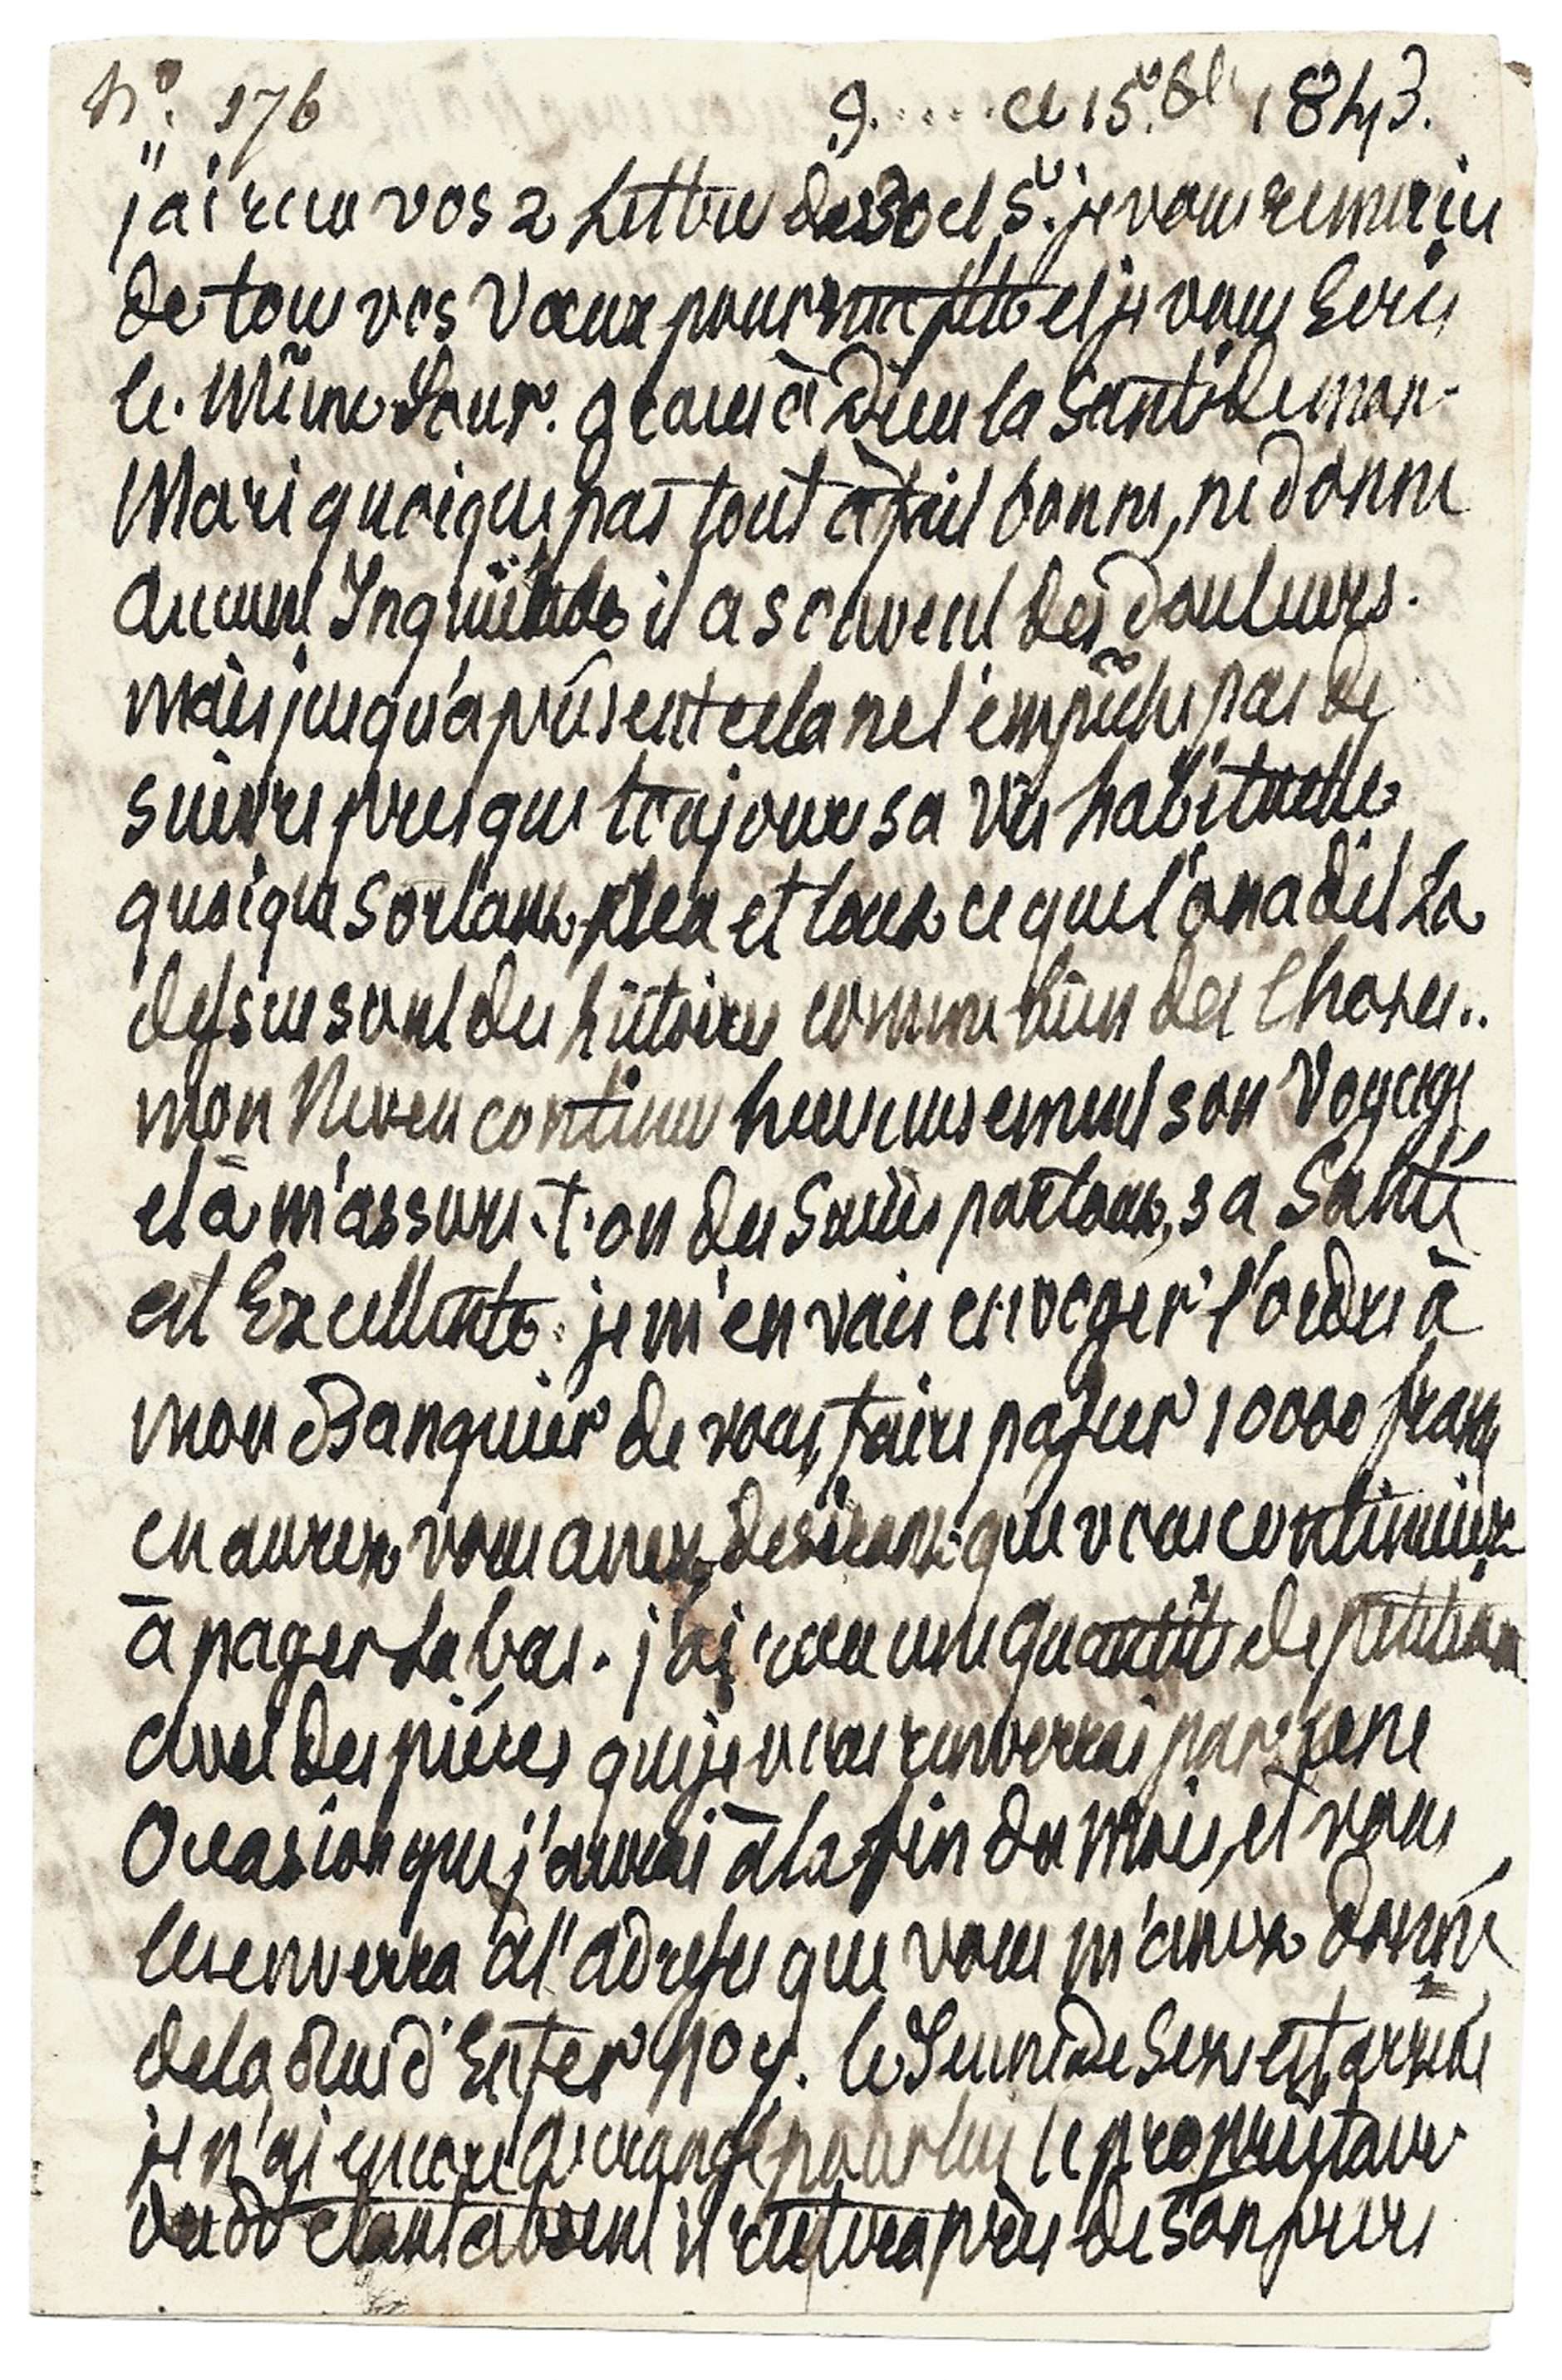 N° 176 G..... ce 15. 8bre 1843.
j'ai recu vos 2 Lettres des 30 et 5. je vous remercie
de tous vos Vœux pour ma fête et je vous Ecris
le même Jour. graces à Dieu la santé de mon
Mari quoique pas tout à fait bonne, ne donne
aucune Inquiétude il a souvent des douleurs.
mais jusqu'à présent cela ne l'empêche pas de
suivre presque toujours sa vie habituelle
quoique sortant peu et tout ce que l'on a dit La
dessus sont des histoires comme bien des Choses..
mon Neveu continue heureusement son Voyage
et a m'assure-t-on du Succès partout, sa Santé
est Excellente. je m'en vais envoyer l'ordre à
mon Banquier de vous faire passer 10000 francs
que vous continuiez
à payer La bas. j'ai recu une quantité de petitions
avec des pièces que je vous renverrai par une
Occasion que j'aurai à la fin du Mois, et vous
les enverra à l'adresse que vous m'avez donné
de la Rue d'Enfer No 9. le Jeune de Seze est arrivé
je n'ai encore arrangé pour lui le propriétaire
étant absent il restera près de son frère